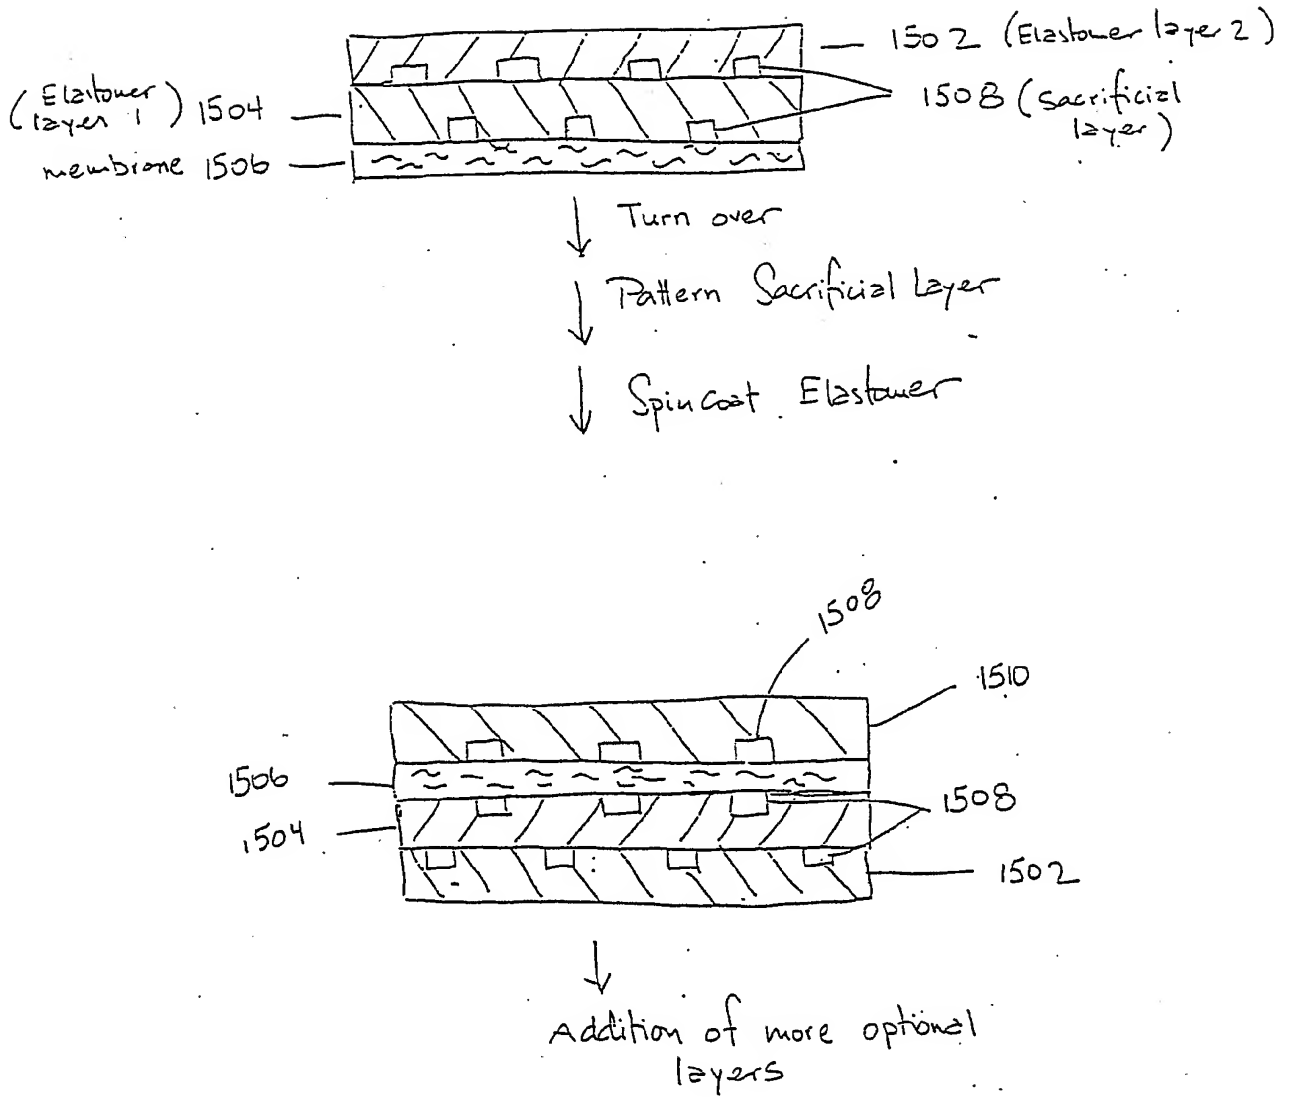 1502 (Elastomer layer 2)
(Elastomer layer 1) 1504
1508 (sacrificial
layer)
membrane 1506
Turn over
Pattern Sacrificial Layer
Spin coat Elastomer
1508
1510
1506
1508
1504
1502
Addition of more optional
layers